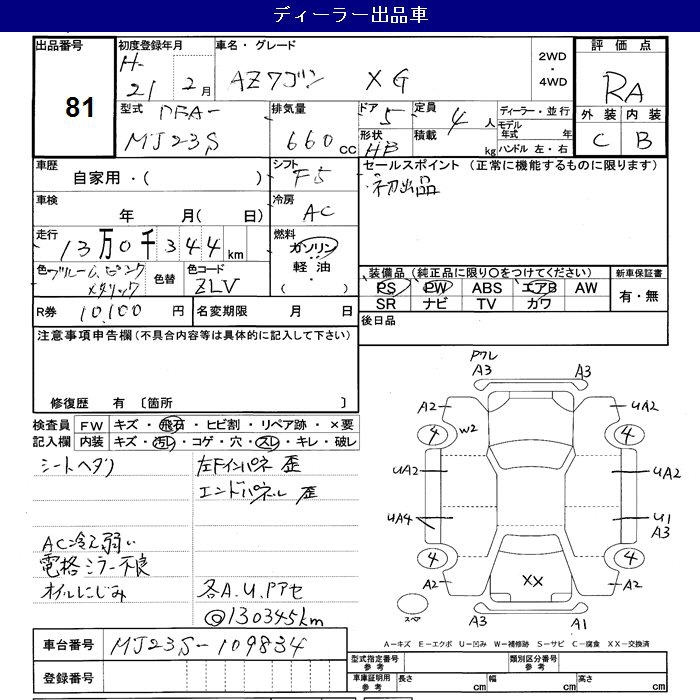 ディーラー出品車
出品番号
81
初度登録年月
H-21 2月
車名・グレード
AZワゴン XG
2WD
・
4WD
評価点
RA
外装 内装
C B
型式
DBA-
MJ23S
排気量
660cc
ドア
5
形状
HB
定員
4人
積載
kg
ディーラー・並行
モデル年式 年
ハンドル 左・右
車歴
自家用・( )
シフト
F5
セールスポイント (正常に機能するものに限ります)
初出品
車検
年 月( 日)
冷房
AC
走行
13万0千344km
燃料
ガソリン
軽油
( )
色
ブルームピンク
メタリック
色替
色コード
ZLV
装備品(純正品に限り〇をつけてください)
PS PW ABS エアB AW
SR ナビ TV カワ
新車保証書
有・無
R券 10,100円
名変期限 月 日
後日品
注意事項申告欄(不具合内容等は具体的に記入して下さい)
修復歴 有 〔箇所 〕
検査員
記入欄
FW キズ・飛石・ヒビ割・リペア跡・×要
内装 キズ・汚レ・コゲ・穴・スレ・キレ・破レ
シートヘタリ
左Fインパネ 歪
エンドパネル 歪
AC冷え弱い
電格ミラー不良
オイルにじみ
各A.U.Pアセ
@130345km
Pワレ
A3 A3
A2 UA2
4 W2 4
UA2 UA2
UA4 U1
A3
4 4
A2 XX A2
スペア
A3 A1
A-キズ E-エクボ U-凹み W-補修跡 S-サビ C-腐食 XX-交換済
車台番号 MJ23S-109834
登録番号
型式指定番号
参考
類別区分番号
参考
車庫証明用
参考
長さ cm
幅 cm
高さ cm